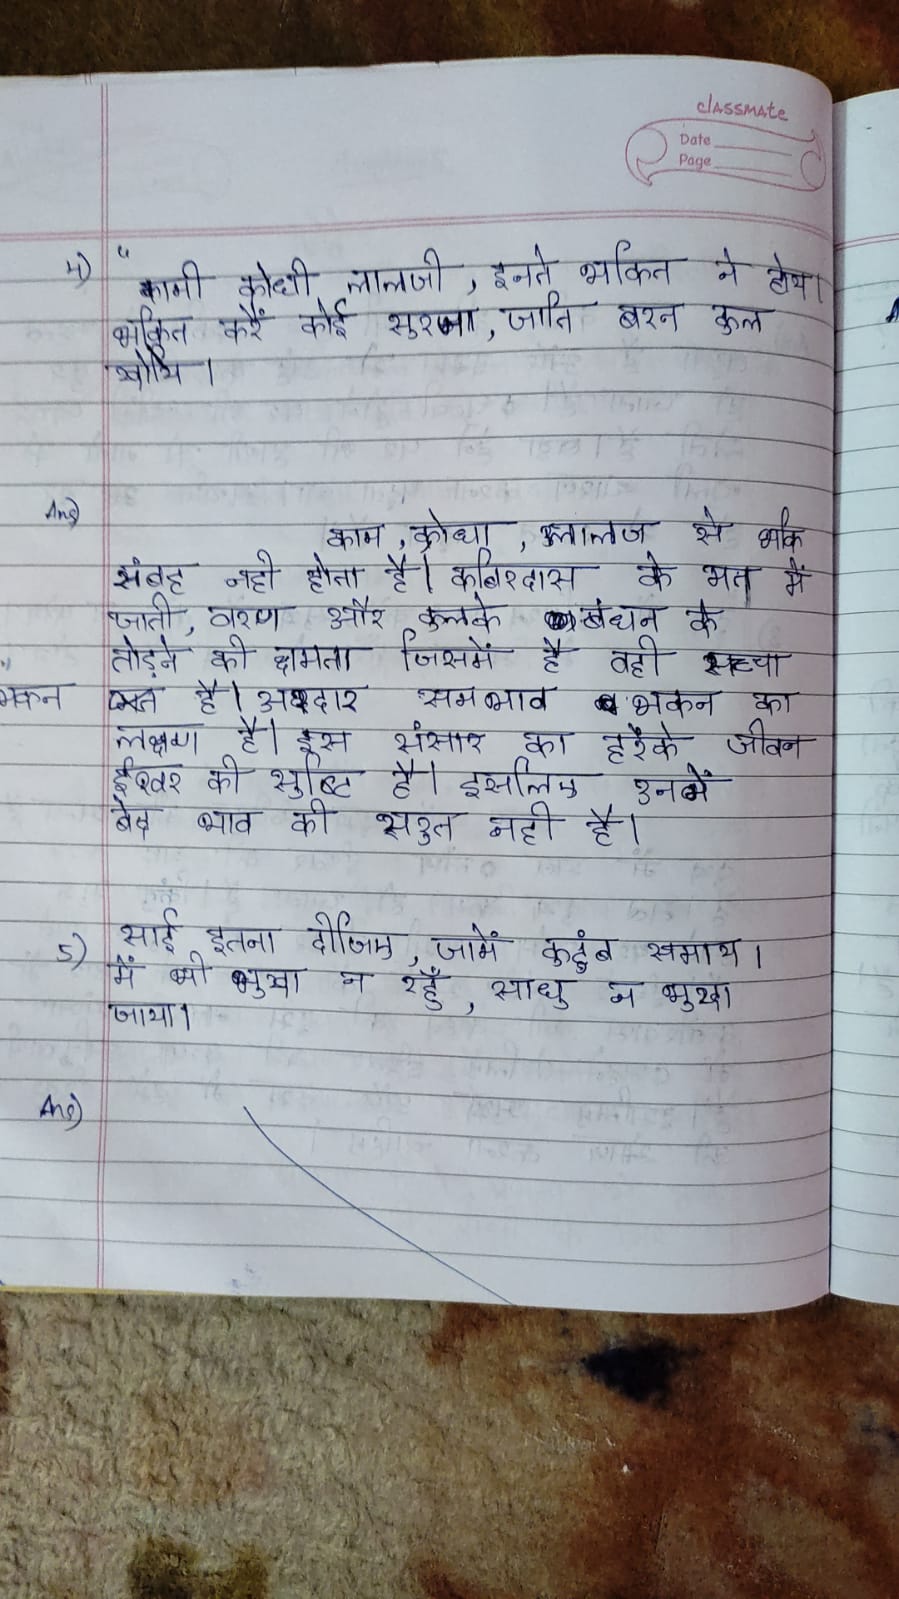 classmate
Date
Page
4) "
कामी क्रोधी लालजी, इनते भकित ने होय।
भकित करैं कोई सुरमा, जाति बरन कुल
खोयि।
Ans)
काम, क्रोधा, लालज से भकि
संबह नही होता है। कबिरदास के मत में
जाती, वरण और कुलके बंधन के
तोड़ने की क्षमता जिसमें है वही सच्चा
भकन है। अरदार समभाव भकन का
लक्षण है। इस संसार का हरैके जीवन
ईश्वर की सुष्टि है। इसलिए उनमें
बेद भाव की सउत नही है।
5) साई इतना दीजिए, जामें कुटुंब समाय।
मैं भी भुखा न रहुँ, साधु न भुखा
जाया।
Ans)